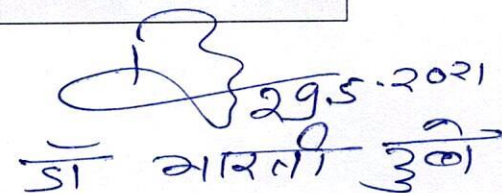 29.5.2021
डॉ भारती दुबे